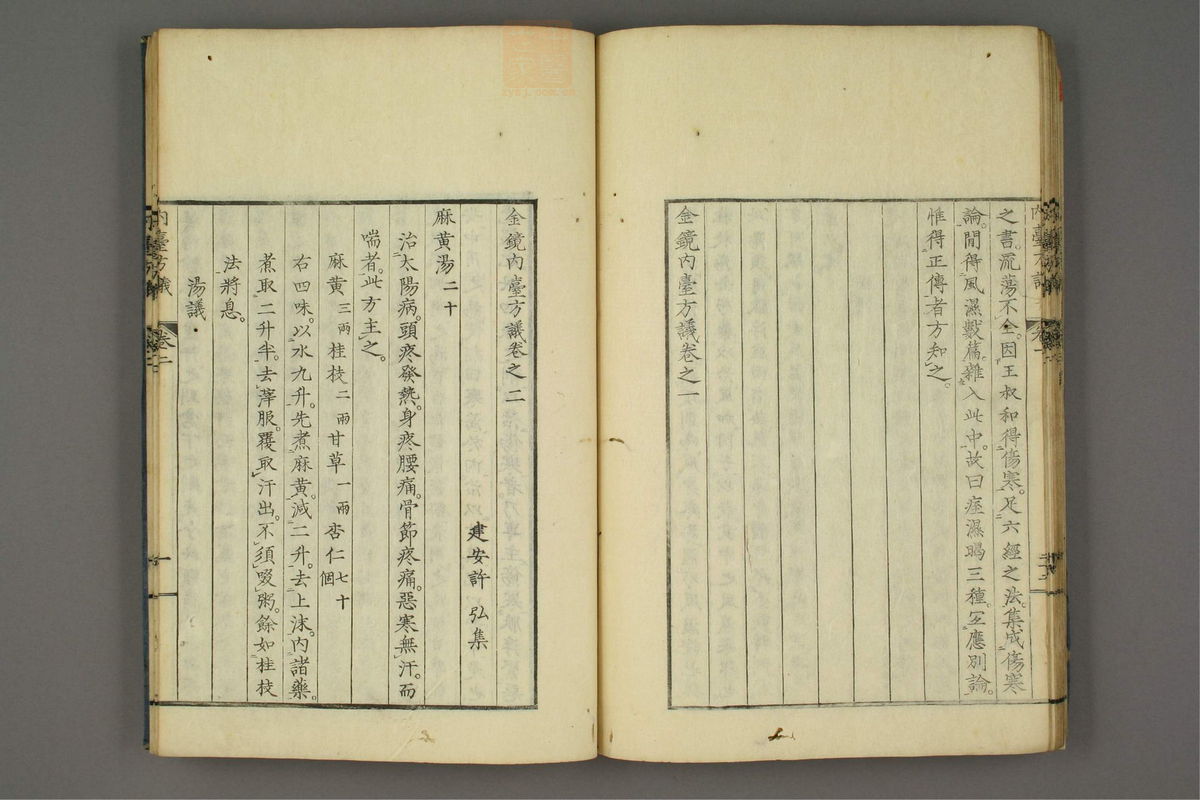 之書。流蕩不全。因王叔和得傷寒。足六經之法。集成傷寒
論。間得風濕數篇。雜入此中。故曰痙濕暍三種。宜應別論。
惟得正傳者方知之。
金鏡內臺方議卷之一
金鏡內臺方議卷之二
建安許弘集
麻黃湯二十
治太陽病。頭疼發熱。身疼腰痛。骨節疼痛。惡寒無汗。而
喘者。此方主之。
麻黃三兩桂枝二兩甘草一兩杏仁七十個
右四味。以水九升。先煮麻黃。減二升。去上沫。內諸藥。
煮取二升半。去滓服。覆取汗出。不須啜粥。餘如桂枝
法將息。
湯議
內臺方議
卷二